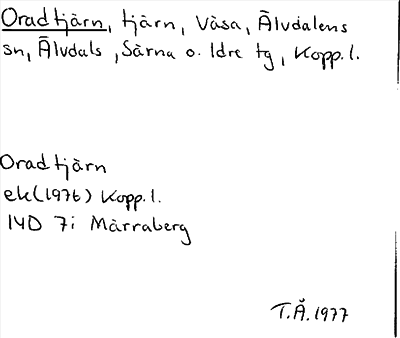 Oradtjärn, tjärn, Våsa, Älvdalens
sn, Älvdals, Särna o. Idre tg, Kopp. l.
Oradtjärn
ek (1976) Kopp. l.
14D 7i Märraberg
T.Å. 1977